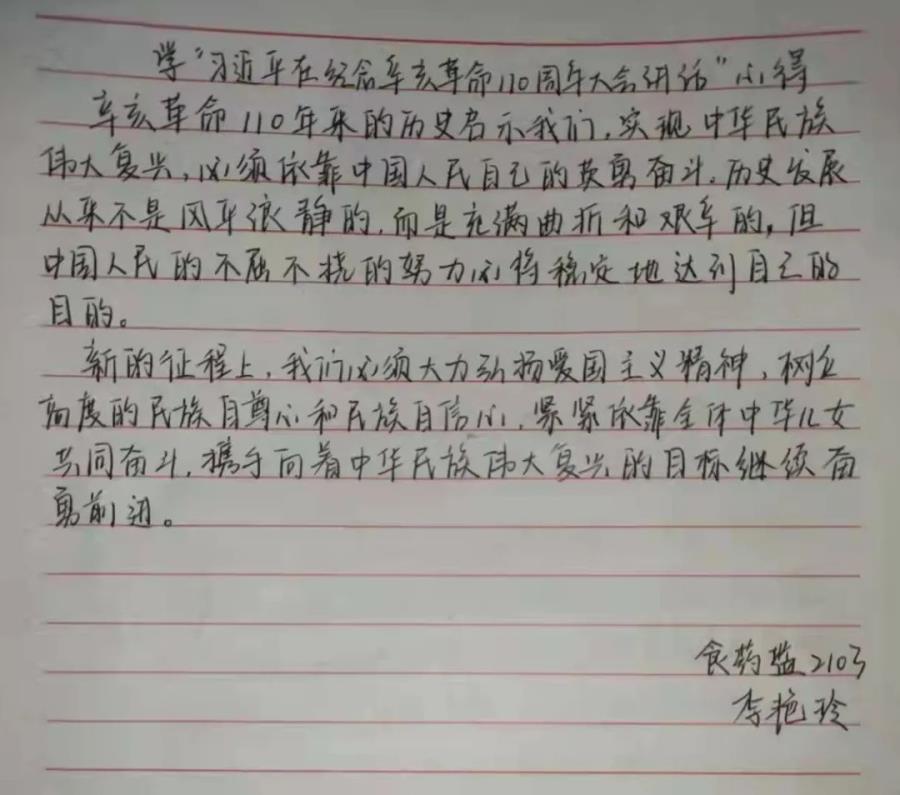 学“习近平在纪念辛亥革命110周年大会讲话”心得
辛亥革命110年来的历史启示我们，实现中华民族
伟大复兴，必须依靠中国人民自己的英勇奋斗。历史发展
从来不是风平浪静的，而是充满曲折和艰辛的，但
中国人民的不屈不挠的努力必将稳定地达到自己的
目的。
新的征程上，我们必须大力弘扬爱国主义精神，树立
高度的民族自尊心和民族自信心，紧紧依靠全体中华儿女
共同奋斗，携手向着中华民族伟大复兴的目标继续奋
勇前进。
食药监2103
李艳玲